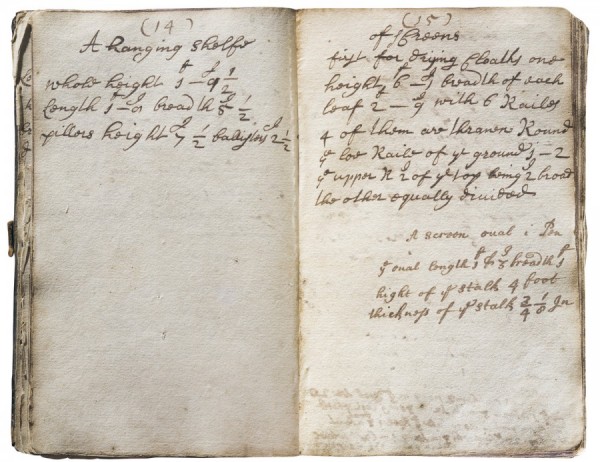 (14)
A hanging shelfe
whole height 1 f – 9 J 1/2
Length 1 f – 6 J breadth 5 J 1/2
pillers height 7 J 1/2 balisters 2 J 1/2
(15)
of Skreens
first for drying Cloaths one
height 6 f – J breadth of each
leaf 2 f – 9 J with 6 Railes
4 of them are thrawn Round
ye loe Raile of ye ground 1 f – 2
ye upper R 2 J of ye top being 2 J broad
the other equally divided
A screen oual
ye oual length 1 f & 3 J breadth 1 f
hight of ye stalk 4 foot
thickness of ye stalk 3/4 1/8 In